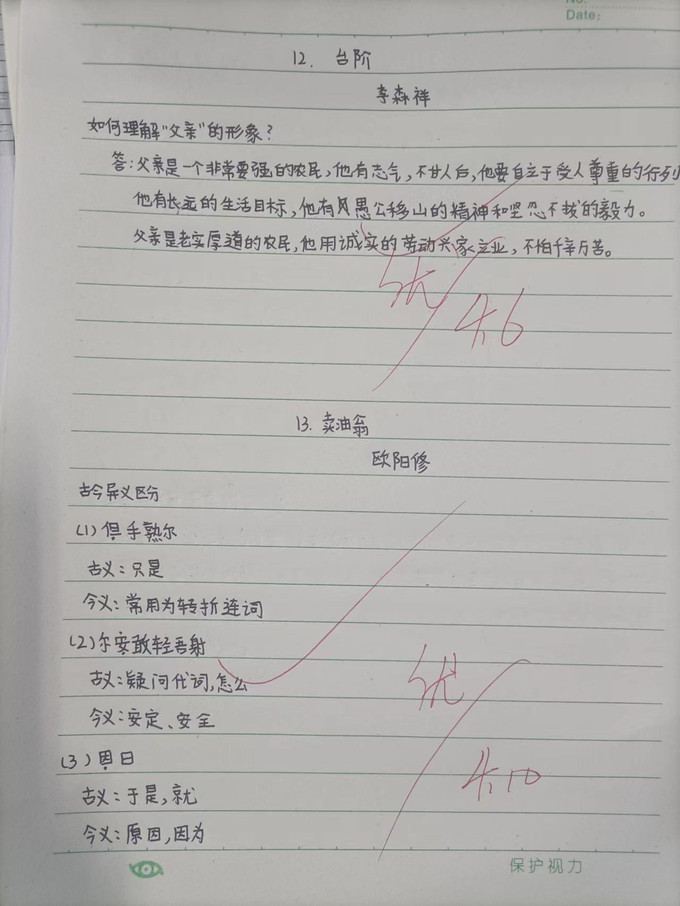 No:
Date:
12. 台阶
李森祥
如何理解“父亲”的形象?
答:父亲是一个非常要强的农民,他有志气,不甘人后,他要自立于受人尊重的行列
他有长远的生活目标,他有风愚公移山的精神和坚忍不拔的毅力。
父亲是老实厚道的农民,他用诚实的劳动兴家立业,不怕千辛万苦。
优
4.6
13. 卖油翁
欧阳修
古今异义区分
(1)但手熟尔
古义:只是
今义:常用为转折连词
(2)尔安敢轻吾射
古义:疑问代词,怎么
今义:安定、安全
优
(3)因曰
4.10
古义:于是,就
今义:原因,因为
保护视力